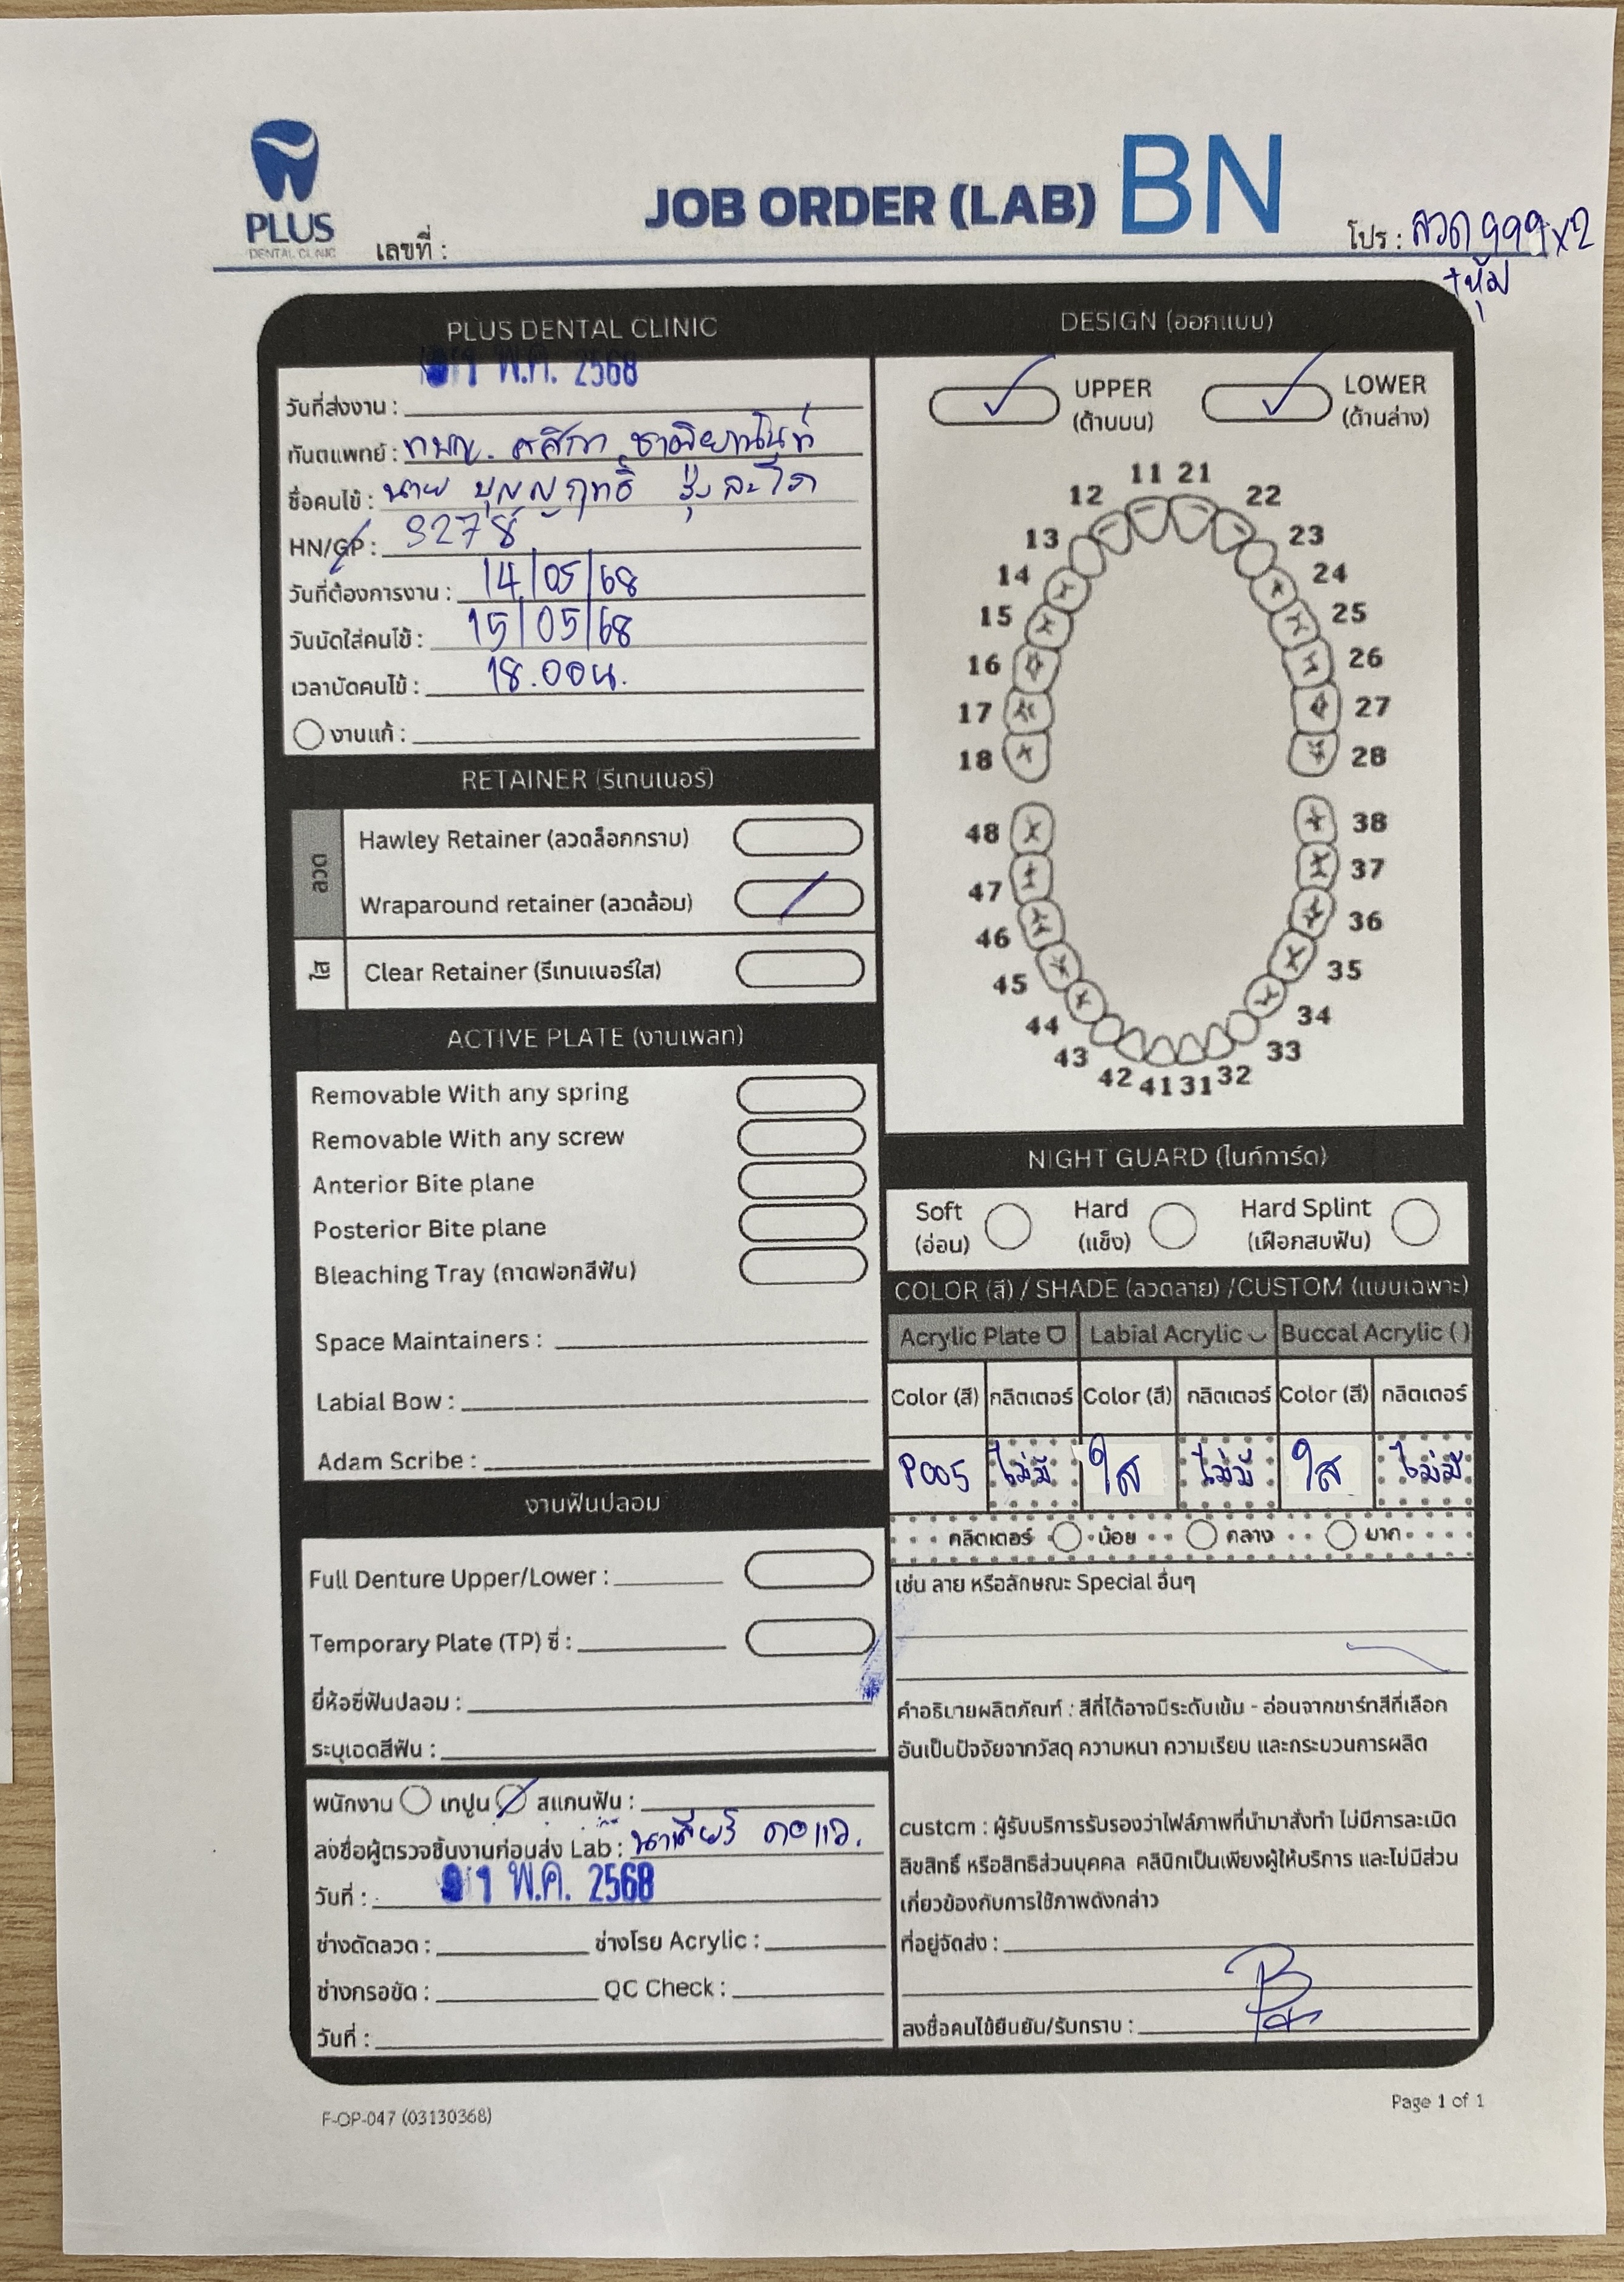 PLUS
DENTAL CLINIC
เลขที่ :
JOB ORDER (LAB) BN
โปร : ลวด 999x2
+หุ้ม
PLUS DENTAL CLINIC
วันที่ส่งงาน : 1 พ.ค. 2568
ทันตแพทย์ : ทพญ. ศศิภา
ชื่อคนไข้ : นาย บุญญฤทธิ์
HN/GP : 9278
วันที่ต้องการงาน : 14/05/68
วันนัดใส่คนไข้ : 15/05/68
เวลานัดคนไข้ : 18.00น.
งานแก้ :
RETAINER (รีเทนเนอร์)
ลวด
Hawley Retainer (ลวดล็อกกราบ)
Wraparound retainer (ลวดล้อม)
ใส
Clear Retainer (รีเทนเนอร์ใส)
ACTIVE PLATE (งานเพลท)
Removable With any spring
Removable With any screw
Anterior Bite plane
Posterior Bite plane
Bleaching Tray (ถาดฟอกสีฟัน)
Space Maintainers :
Labial Bow :
Adam Scribe :
งานฟันปลอม
Full Denture Upper/Lower :
Temporary Plate (TP) ซี่ :
ยี่ห้อซี่ฟันปลอม :
ระบุเฉดสีฟัน :
พนักงาน เทปูน สแกนฟัน :
ลงชื่อผู้ตรวจชิ้นงานก่อนส่ง Lab :
วันที่ : 1 พ.ค. 2568
ช่างดัดลวด : ช่างโรย Acrylic :
ช่างกรอขัด : QC Check :
วันที่ :
DESIGN (ออกแบบ)
UPPER
(ด้านบน)
LOWER
(ด้านล่าง)
11 21
12 22
13 23
14 24
15 25
16 26
17 27
18 28
48 38
47 37
46 36
45 35
44 34
43 33
42 41 31 32
NIGHT GUARD (ไนท์การ์ด)
Soft
(อ่อน)
Hard
(แข็ง)
Hard Splint
(เฝือกสบฟัน)
COLOR (สี) / SHADE (ลวดลาย) /CUSTOM (แบบเฉพาะ)
Acrylic Plate Labial Acrylic Buccal Acrylic ( )
Color (สี) กลิตเตอร์ Color (สี) กลิตเตอร์ Color (สี) กลิตเตอร์
P005 ไม่มี ใส ไม่มี ใส ไม่มี
กลิตเตอร์ น้อย กลาง มาก
เช่น ลาย หรือลักษณะ Special อื่นๆ
คำอธิบายผลิตภัณฑ์ : สีที่ได้อาจมีระดับเข้ม - อ่อนจากชาร์ทสีที่เลือก
อันเป็นปัจจัยจากวัสดุ ความหนา ความเรียบ และกระบวนการผลิต
custom : ผู้รับบริการรับรองว่าไฟล์ภาพที่นำมาสั่งทำ ไม่มีการละเมิด
ลิขสิทธิ์ หรือสิทธิส่วนบุคคล คลินิกเป็นเพียงผู้ให้บริการ และไม่มีส่วน
เกี่ยวข้องกับการใช้ภาพดังกล่าว
ที่อยู่จัดส่ง :
ลงชื่อคนไข้ยืนยัน/รับทราบ :
F-OP-047 (03130368)
Page 1 of 1